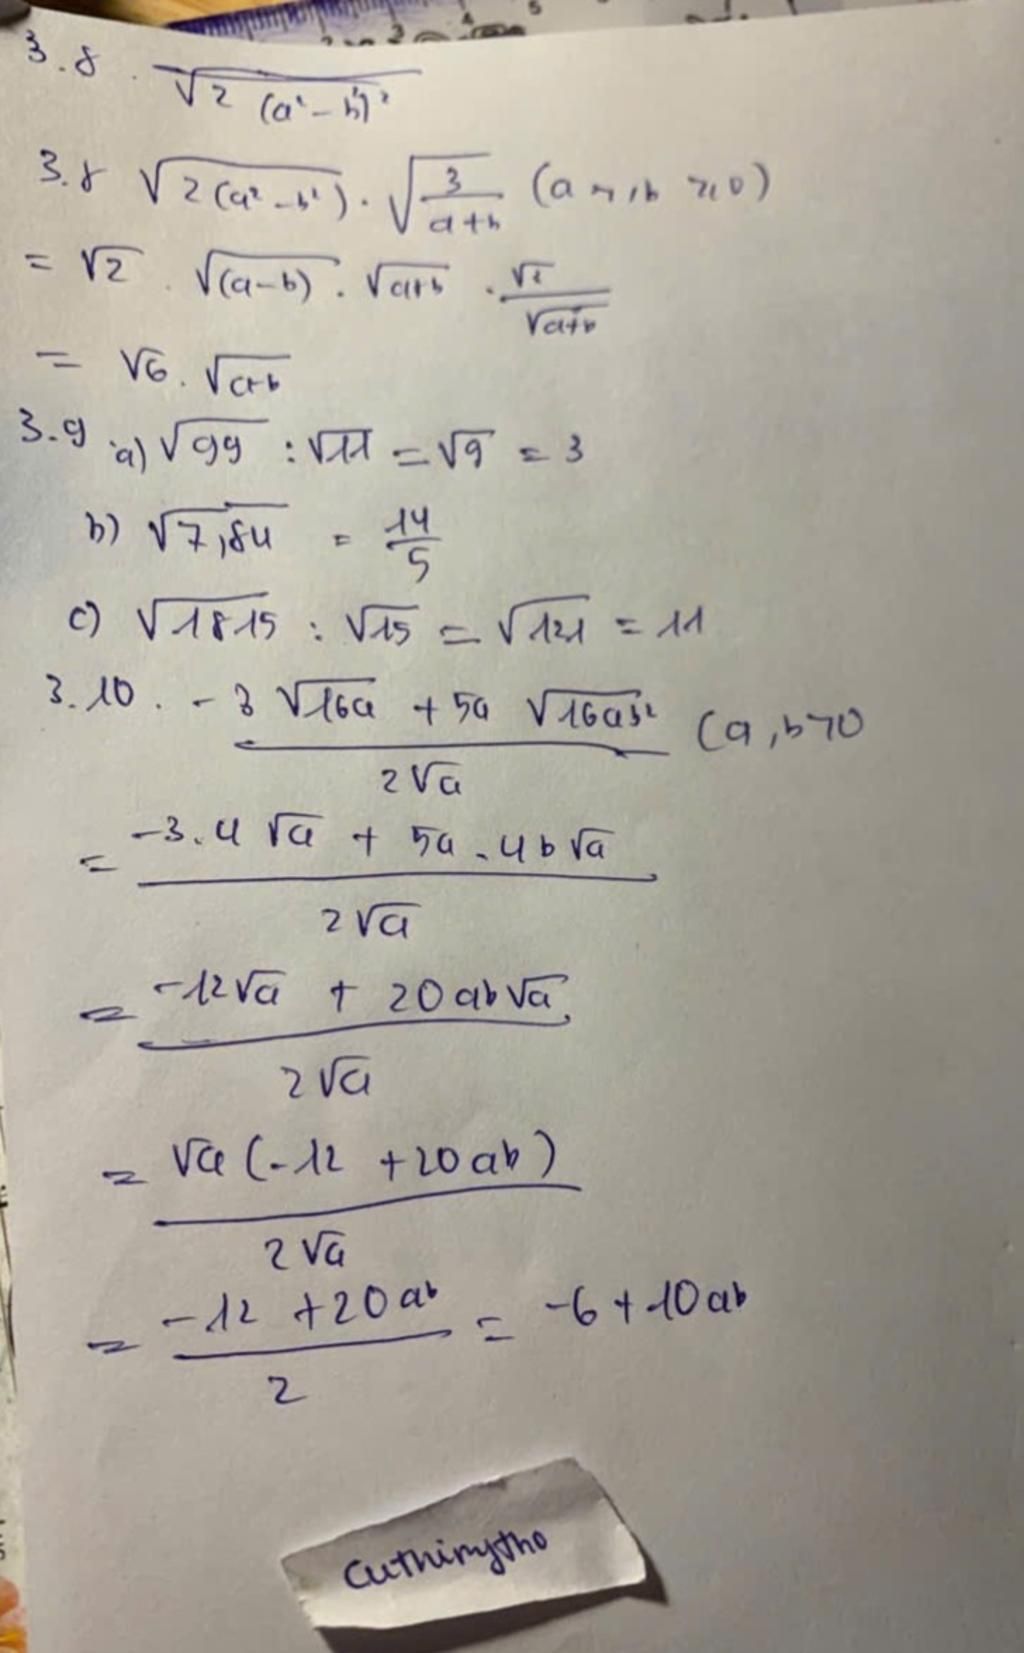 3.8. √2 (a² - b²)²
3.8 √2(a² - b²) . √3/(a+b) (a ≥ b ≥ 0)
= √2 . √(a-b) . √a+b . √3/√a+b
= √6 . √a+b
3.9 a) √99 : √11 = √9 = 3
b) √7,84 = 14/5
c) √1815 : √15 = √121 = 11
3.10. (-3 √16a + 5a √16ab²)/(2√a) (a, b > 0
= (-3.4 √a + 5a . 4b√a)/(2√a)
= (-12√a + 20ab√a)/(2√a)
= √a (-12 + 20ab)/(2√a)
= (-12 + 20ab)/2 = -6 + 10ab
cuthimytho